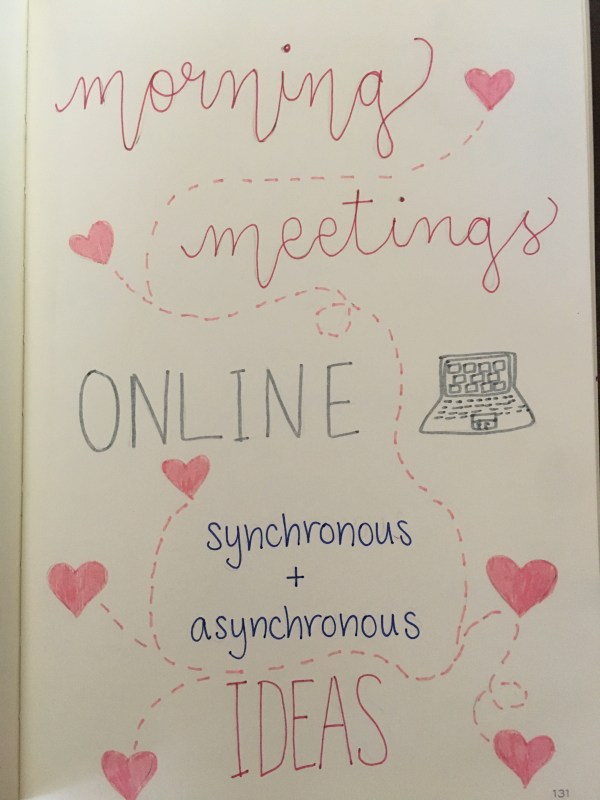 morning
meetings
ONLINE
synchronous
+
asynchronous
IDEAS
131